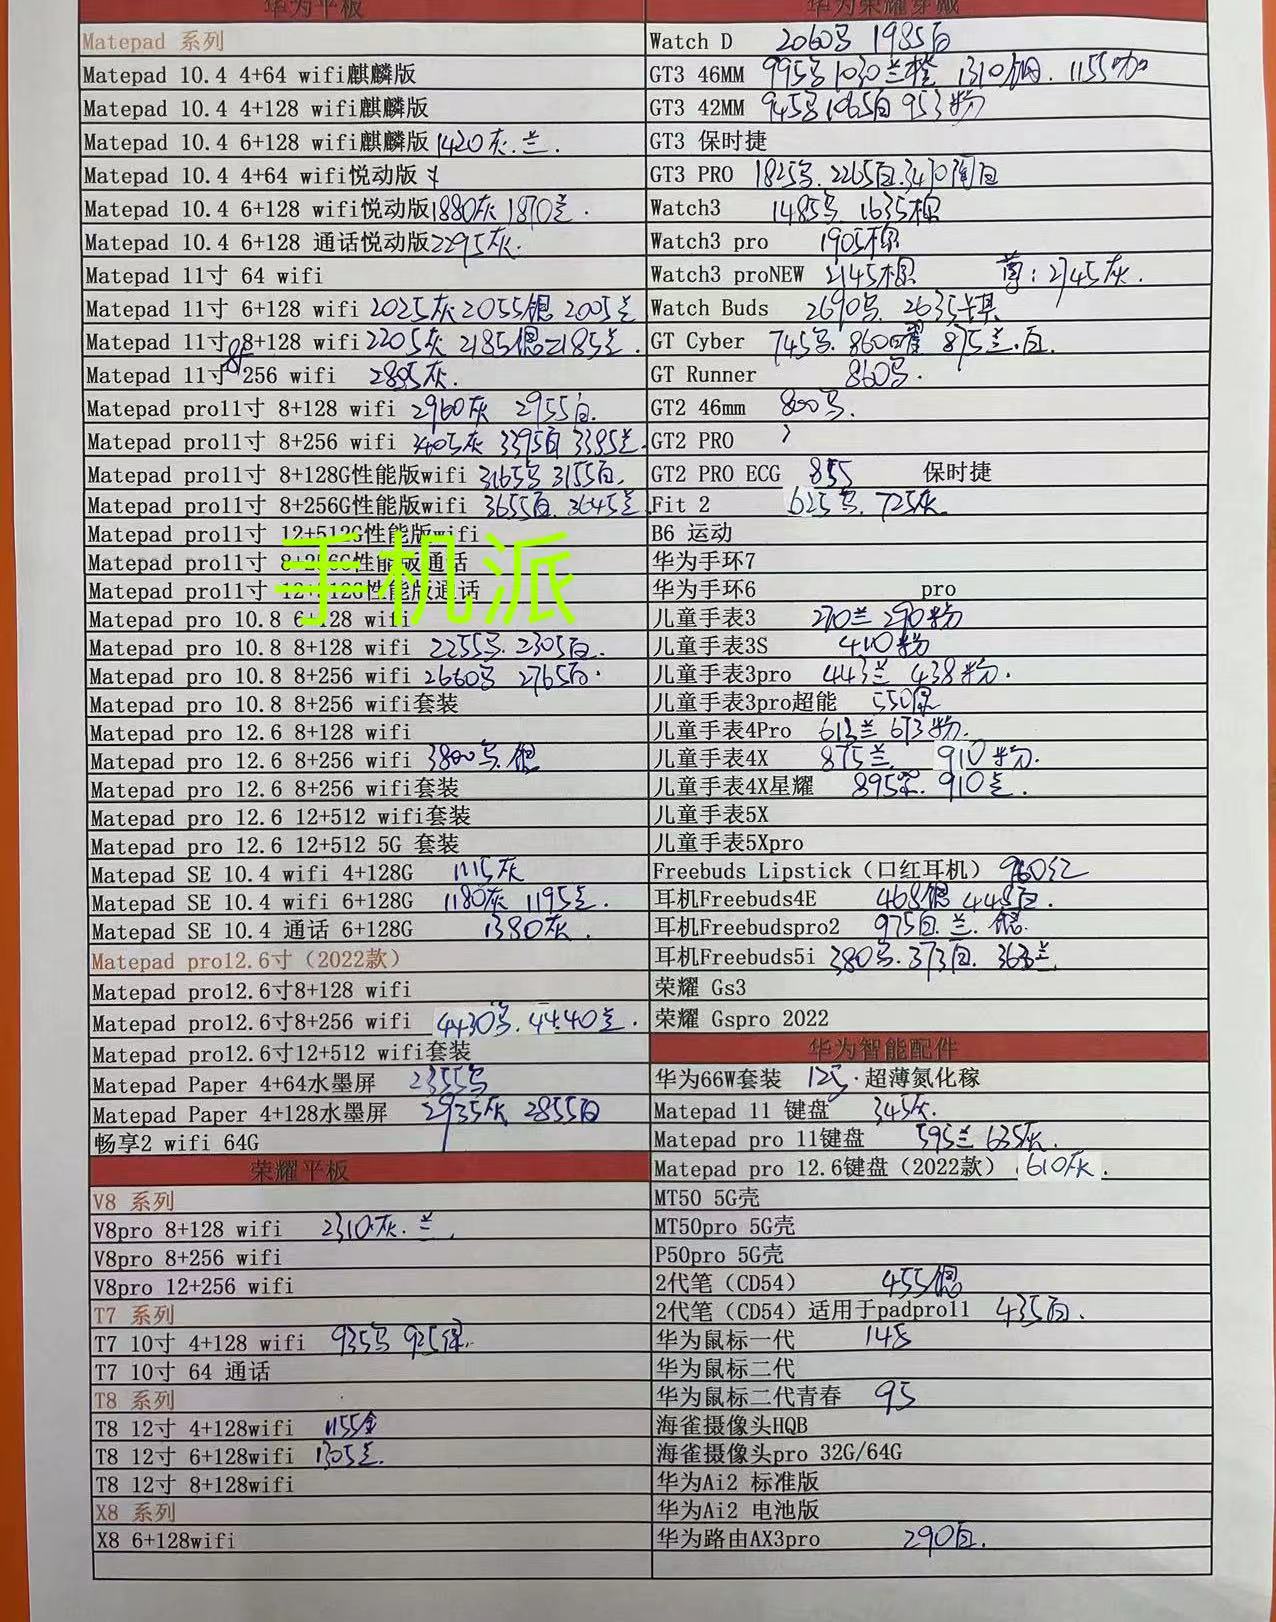 华为平板
Matepad 系列
Matepad 10.4 4+64 wifi麒麟版
Matepad 10.4 4+128 wifi麒麟版
Matepad 10.4 6+128 wifi麒麟版 1420灰.兰.
Matepad 10.4 4+64 wifi悦动版
Matepad 10.4 6+128 wifi悦动版 1880灰 1870兰.
Matepad 10.4 6+128 通话悦动版 2295灰.
Matepad 11寸 64 wifi
Matepad 11寸 6+128 wifi 2025灰 2055银 2005兰
Matepad 11寸 8+128 wifi 2205灰 2185银 2185兰.
Matepad 11寸 8+256 wifi 2895灰.
Matepad pro11寸 8+128 wifi 2960灰 2955白.
Matepad pro11寸 8+256 wifi 3405灰 3395白 3385兰.
Matepad pro11寸 8+128G性能版wifi 3165号 3155白.
Matepad pro11寸 8+256G性能版wifi 3655白. 3645兰
Matepad pro11寸 12+512G性能版wifi
Matepad pro11寸 8+256G性能版通话
Matepad pro11寸 12+512G性能版通话
手机派
Matepad pro 10.8 6+128 wifi
Matepad pro 10.8 8+128 wifi 2255号. 2305白.
Matepad pro 10.8 8+256 wifi 2660号 2765白.
Matepad pro 10.8 8+256 wifi套装
Matepad pro 12.6 8+128 wifi
Matepad pro 12.6 8+256 wifi 3800号.银
Matepad pro 12.6 8+256 wifi套装
Matepad pro 12.6 12+512 wifi套装
Matepad pro 12.6 12+512 5G 套装
Matepad SE 10.4 wifi 4+128G 1115灰
Matepad SE 10.4 wifi 6+128G 1180灰 1195兰.
Matepad SE 10.4 通话 6+128G 1380灰.
Matepad pro12.6寸（2022款）
Matepad pro12.6寸8+128 wifi
Matepad pro12.6寸8+256 wifi 4430号. 4440兰.
Matepad pro12.6寸12+512 wifi套装
Matepad Paper 4+64水墨屏 2355号
Matepad Paper 4+128水墨屏 2935灰 2855白
畅享2 wifi 64G
荣耀平板
V8 系列
V8pro 8+128 wifi 2310灰.兰.
V8pro 8+256 wifi
V8pro 12+256 wifi
T7 系列
T7 10寸 4+128 wifi 935号 925银.
T7 10寸 64 通话
T8 系列
T8 12寸 4+128wifi 1155金
T8 12寸 6+128wifi 1305兰.
T8 12寸 8+128wifi
X8 系列
X8 6+128wifi
华为荣耀穿戴
Watch D 2060号 1985白
GT3 46MM 995号 1030兰橙 1310钢. 1155咖
GT3 42MM 945号 1065白 953粉
GT3 保时捷
GT3 PRO 1825号. 2265白. 3430陶白
Watch3 1485号 1635棕
Watch3 pro 1905棕
Watch3 proNEW 2145棕 尊:2745灰.
Watch Buds 2690号. 2635卡其
GT Cyber 745号. 860曜 875兰.白.
GT Runner 860号.
GT2 46mm 800号.
GT2 PRO
GT2 PRO ECG 855 保时捷
Fit 2 625号. 725灰
B6 运动
华为手环7
华为手环6 pro
儿童手表3 270兰 290粉
儿童手表3S 410粉
儿童手表3pro 443兰 438粉.
儿童手表3pro超能 550银
儿童手表4Pro 613兰 673粉.
儿童手表4X 875兰 910粉.
儿童手表4X星耀 895 910兰.
儿童手表5X
儿童手表5Xpro
Freebuds Lipstick（口红耳机） 960红
耳机Freebuds4E 468银 448白.
耳机Freebudspro2 975白.兰.银.
耳机Freebuds5i 380号. 373白. 363兰
荣耀 Gs3
荣耀 Gspro 2022
华为智能配件
华为66W套装 125.超薄氮化稼
Matepad 11 键盘 345灰.
Matepad pro 11键盘 595兰 635灰.
Matepad pro 12.6键盘（2022款） 610灰.
MT50 5G壳
MT50pro 5G壳
P50pro 5G壳
2代笔（CD54） 455银
2代笔（CD54）适用于padpro11 435白.
华为鼠标一代 145
华为鼠标二代
华为鼠标二代青春 95
海雀摄像头HQB
海雀摄像头pro 32G/64G
华为Ai2 标准版
华为Ai2 电池版
华为路由AX3pro 290白.